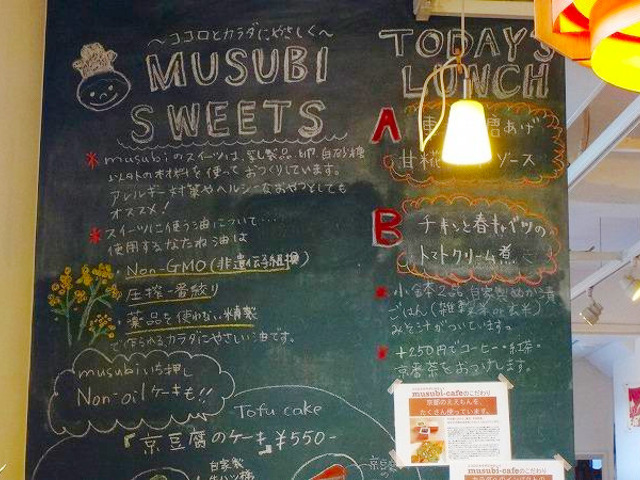 〜ココロとカラダにやさしく〜
MUSUBI
SWEETS
* musubiのスイーツは、乳製品、卵、白砂糖
以外の材料を使っておつくりしています。
アレルギー対策やヘルシーなおやつとしても
オススメ!
* スイーツに使う油について…
使用するなたね油は
・Non-GMO(非遺伝子組換)
・圧搾一番絞り
・薬品を使わない精製
で作られるカラダにやさしい油です。
musubiいち押し
Non-oilケーキも!!
Tofu cake
『京豆腐のケーキ』¥550-
自家製
TODAY'S
LUNCH
A
あげ
甘糀 ソース
B
チキンと春キャベツの
トマトクリーム煮
小鉢2品 自家製ぬか漬
ごはん(雑穀米or玄米)
みそ汁がついています。
+250円でコーヒー・紅茶・
京番茶をおつけします。
musubi-cafeのこだわり
京都のええもんを、
たくさん使っています。
musubi-cafeのこだわり